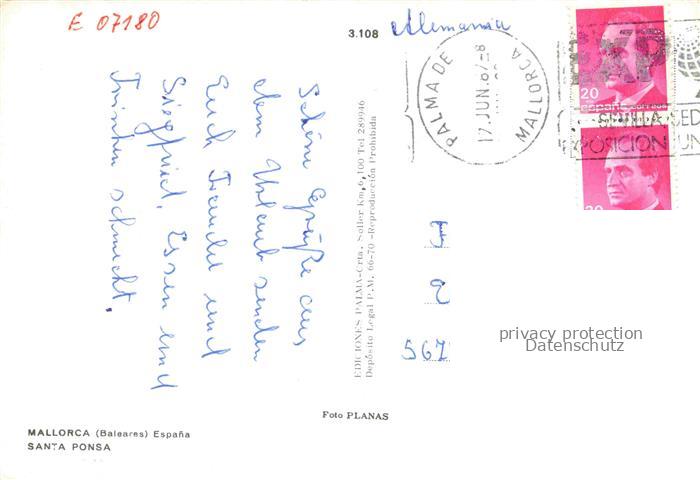 E 07180
3.108
Alemania
PALMA DE MALLORCA
17.JUN.8
EXP
SEVILLA SED
POSICION UN
20
españa correos
20
Schöne Grüße aus
dem Urlaub senden
Euch Traudel und
Siegfried, Essen und
Trinken schmeckt.
EDICIONES PALMA-Crta. Soller Km. 6,100 Tel 289946
Depósito Legal P.M. 66-70 -Reproducción Prohibida
F
a
567
privacy protection
Datenschutz
Foto PLANAS
MALLORCA (Baleares) España
SANTA PONSA